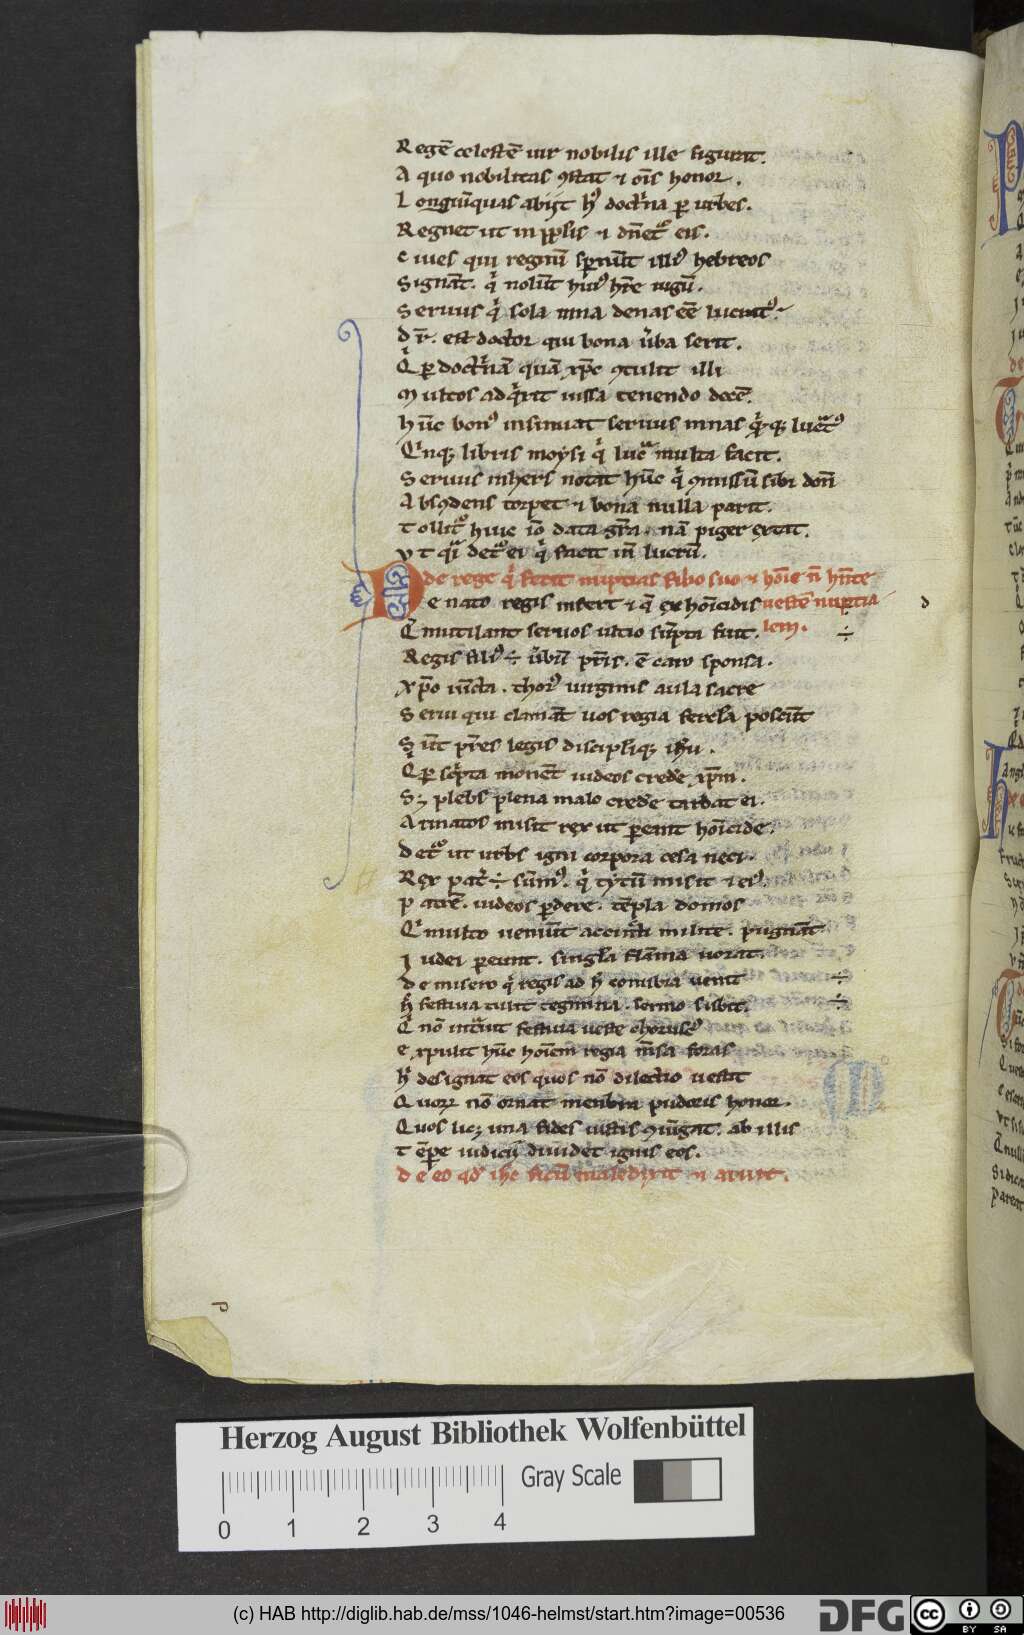 Regē celestē uir nobilis ille figurat.
A quo nobilitas ꝯstat ⁊ oīs honor.
Longīquas abijt hꝰ doctͥna ꝑ urbes.
Regnet ut in pplis ⁊ dn̄etꝰ eis.
Ciues qui regimī sꝑnūt illiꝰ hebreos
Signāt. qͥ nolūt huiꝰ hr̄e iugū.
Seruus qͥ sola mna denas eē
dr̄. est doctor qui bona ūba serit.
Qͥ ꝑ doctͥnā quā xp̄c ꝯtulit illi
Multos adqͥrit iussa tenendo decē.
hūc bonꝰ insinuat seruus mnas
libris moysi qͥ multa facit.
Seruus inhers notat hūc qͥ ꝯmissū sibi don̄
Absꝯdens torpet ⁊ bona nulla parit.
Tollitͦ huic iō data gr̄a. nā piger extat.
Vt qͣi detͦ ei qͥ facit in̄ lucrū.
de rege qͥ fecit nuptias filio suo ⁊ hoīe n̄ hn̄te
De nato regis infert ⁊ qͥ ex hoīcidis uestē nuptia
Qͥ mutilant seruos ultio sūpta fuit. lem.
Regis filiꝰ ÷ ūbū pr̄is. ē caro sponsa.
Xp̄o iūcta. thorꝰ uirginis aula sacre
Serui qui clamāt uos regia fercl̄a poscūt
Sūt pr̄es legis discipliqꝫ ih̄u.
Qͥ ꝑ scͥpta monēt iudeos credē xp̄m.
Sꝫ plebs plena malo credē tardat ei.
Armatos misit rex ut ꝑeant hoīcide.
Detͦ ut urbs igni corpora cesa neci.
Rex patͥ ÷ sūmꝰ. qͥ tytū misit ⁊ eiꝰ.
Patrē. iudeos ꝑdere. tēpla domos
Qͥ multo ueniūt accincti milite. pugnāt
Iudei ꝑeunt. singl̄a flāma uorat.
De misero qͥ regis ad h̄ conubia uenit
hͥ festiua tulit tegmina. sermo subit.
Qͥ nō intͣuit festiua ueste
expulit hūc hoīem regia mēsa foras
hͥ designat eos quos nō dilectio uestit
Quoꝝ nō ornat menbra pudoris honor.
Quos licꝫ una fides iustis ꝯiūgat. ab illis
Tēꝑe iudicii diuidet ignis eos.
de eo qd̄ ih̄c ficū maledixit ⁊ aruit.
d
Herzog August Bibliothek Wolfenbüttel
Gray Scale
0 1 2 3 4
(c) HAB http://diglib.hab.de/mss/1046-helmst/start.htm?image=00536
DFG
cc BY SA